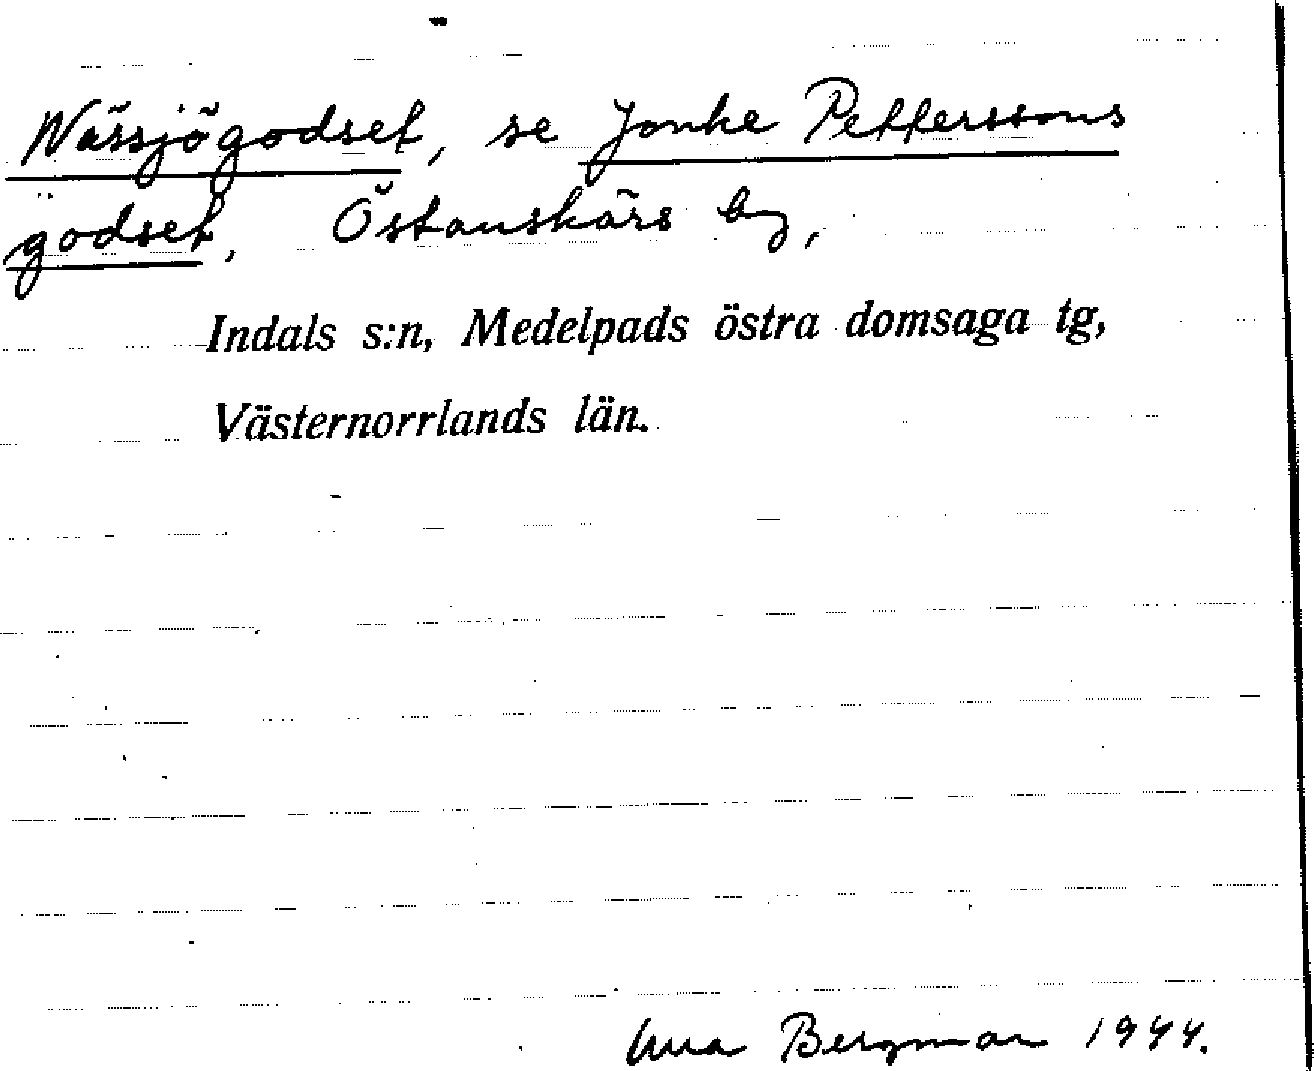 Wässjögodset, se Jonke Petterssons
godset, Östanskärs by,
Indals s:n, Medelpads östra domsaga tg,
Västernorrlands län.
Bergman 1944.